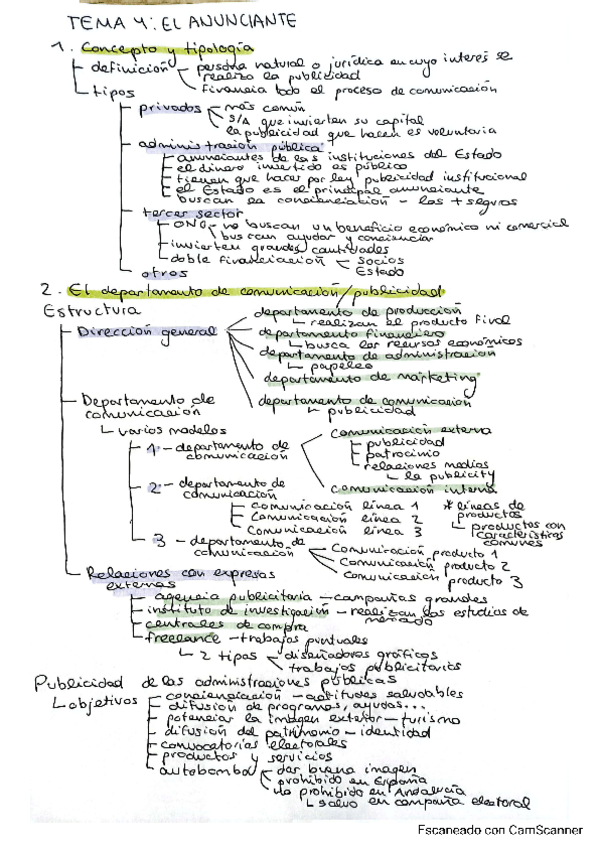 TEMA 4: EL ANUNCIANTE
1. Concepto y tipología
definición – persona natural o jurídica en cuyo interés se
realiza la publicidad
financia todo el proceso de comunicación
tipos
privados – más común
S/A que invierten su capital
la publicidad que hacen es voluntaria
administración pública
anunciantes de las instituciones del Estado
el dinero invertido es público
tienen que hacer por ley publicidad institucional
el Estado es el principal anunciante
buscan la concienciación – los + seguros
tercer sector
ONG – no buscan un beneficio económico ni comercial
buscan ayudar y concienciar
invierten grandes cantidades
doble financiación – socios
Estado
otros
2. El departamento de comunicación/publicidad
Estructura
Dirección general
departamento de producción
realizan el producto final
departamento financiero
busca los recursos económicos
departamento de administración
papeleo
departamento de marketing
departamento de comunicación
publicidad
Departamento de
comunicación
varios modelos
1 – departamento de
comunicación
comunicación externa
publicidad
patrocinio
relaciones medios
la publicity
comunicación interna
2 – departamento de
comunicación
comunicación línea 1
comunicación línea 2
comunicación línea 3
* líneas de
productos
productos con
características
comunes
3 – departamento de
comunicación
comunicación producto 1
comunicación producto 2
comunicación producto 3
Relaciones con expresas
externas
agencia publicitaria – campañas grandes
instituto de investigación – realizan los estudios de
mercado
centrales de compra
freelance – trabajos puntuales
2 tipos – diseñadores gráficos
trabajos publicitarios
Publicidad de las administraciones públicas
objetivos
concienciación – actitudes saludables
difusión de programas, ayudas...
potenciar la imagen exterior – turismo
difusión del patrimonio – identidad
convocatorias electorales
productos y servicios
autobombo – dar buena imagen
prohibido en España
no prohibido en Andalucía
salvo en campaña electoral
Escaneado con CamScanner